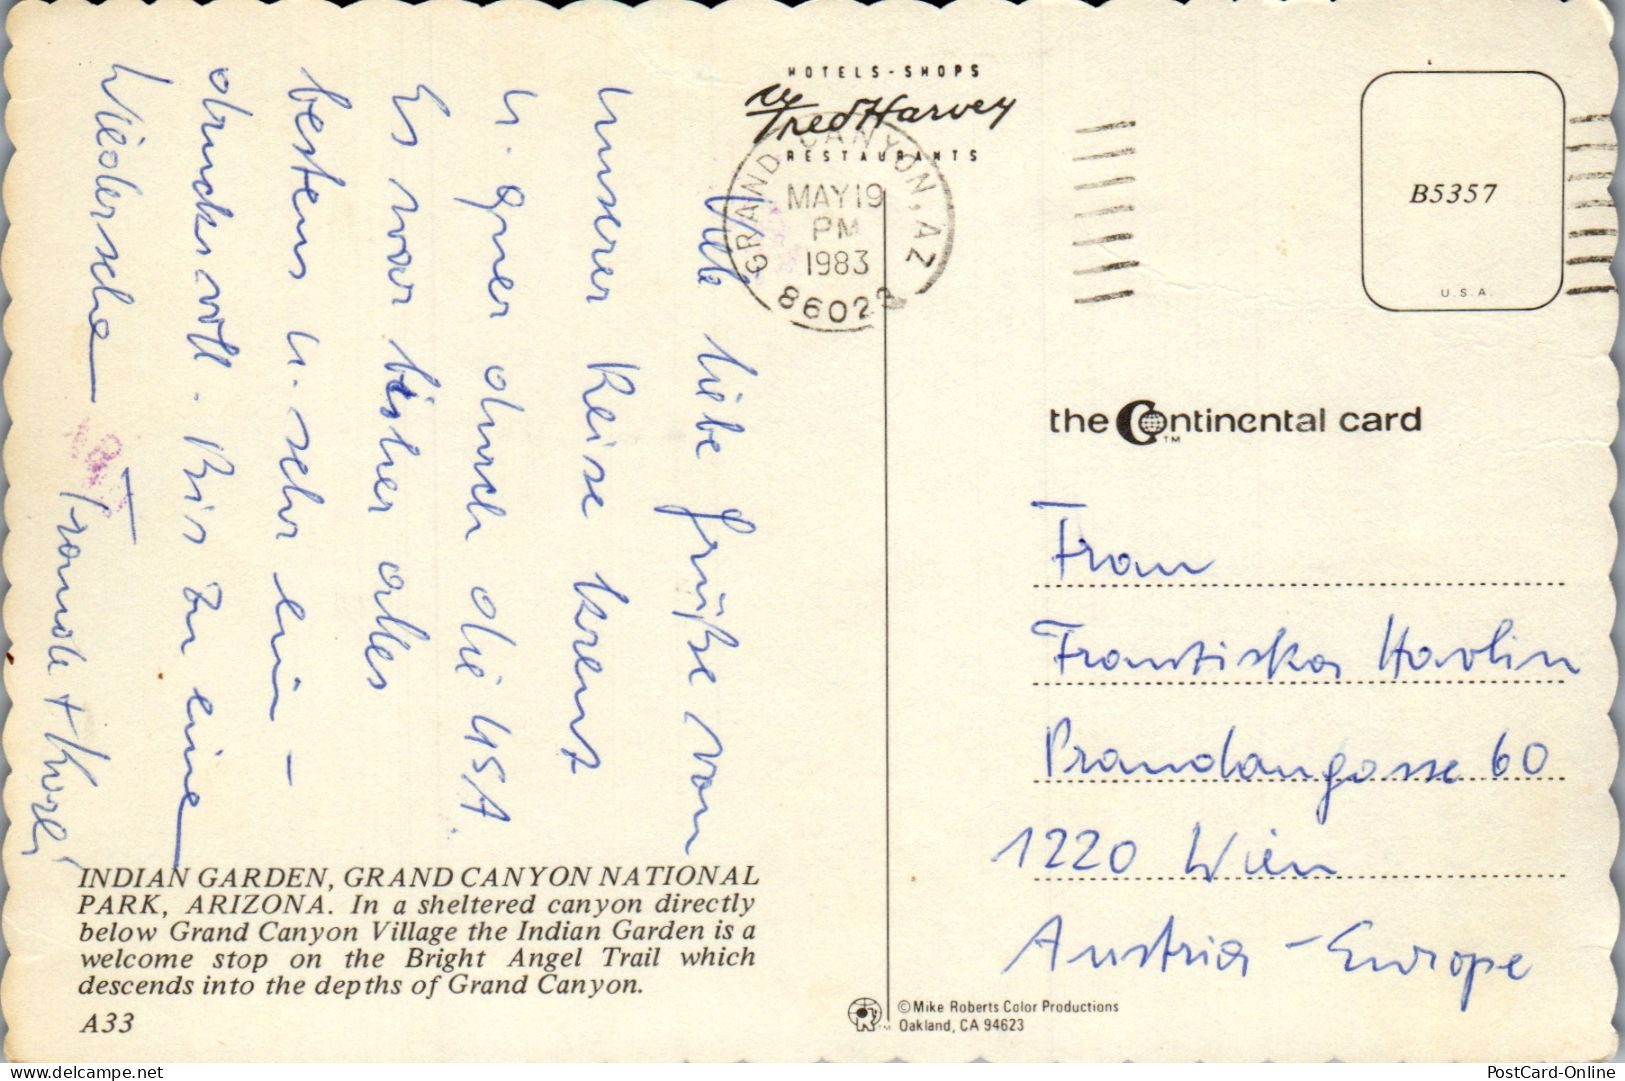 HOTELS - SHOPS
Fred Harvey
RESTAURANTS
GRAND CANYON, AZ
MAY 19
PM
1983
86023
B5357
U.S.A.
the Continental card
TM
Viele liebe Grüße von
unserer Reise kreuz
u. quer durch die USA.
Es war bisher alles
bestens u. sehr ein-
drucksvoll. Bis zu eine
Wiedersehen
Traude + Karli
Frau
Franziska Havlin
Prandaugasse 60
1220 Wien
Austria - Europe
INDIAN GARDEN, GRAND CANYON NATIONAL
PARK, ARIZONA. In a sheltered canyon directly
below Grand Canyon Village the Indian Garden is a
welcome stop on the Bright Angel Trail which
descends into the depths of Grand Canyon.
A33
© Mike Roberts Color Productions
Oakland, CA 94623
the-jerry.com
PostCard-Online